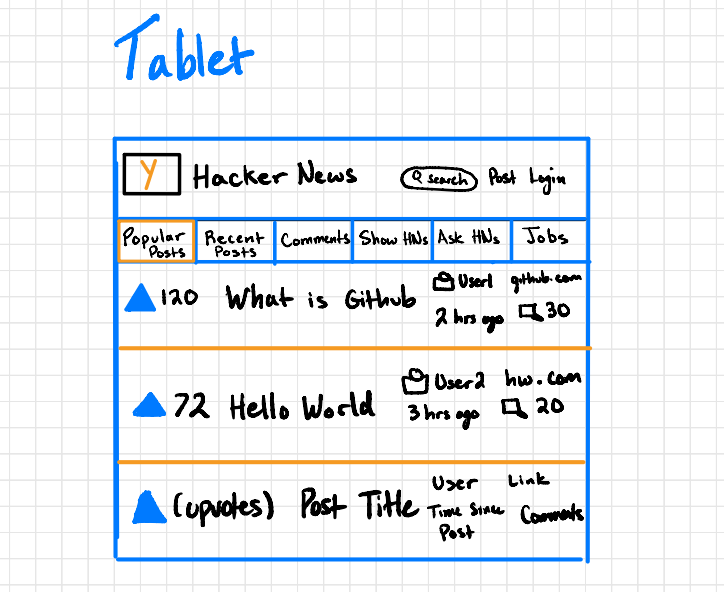 Tablet
Y Hacker News search Post Login
Popular Posts Recent Posts Comments Show HNs Ask HNs Jobs
120 What is Github User1 github.com
2 hrs ago 30
72 Hello World User2 hw.com
3 hrs ago 20
(upvotes) Post Title User Link
Time Since Post Comments